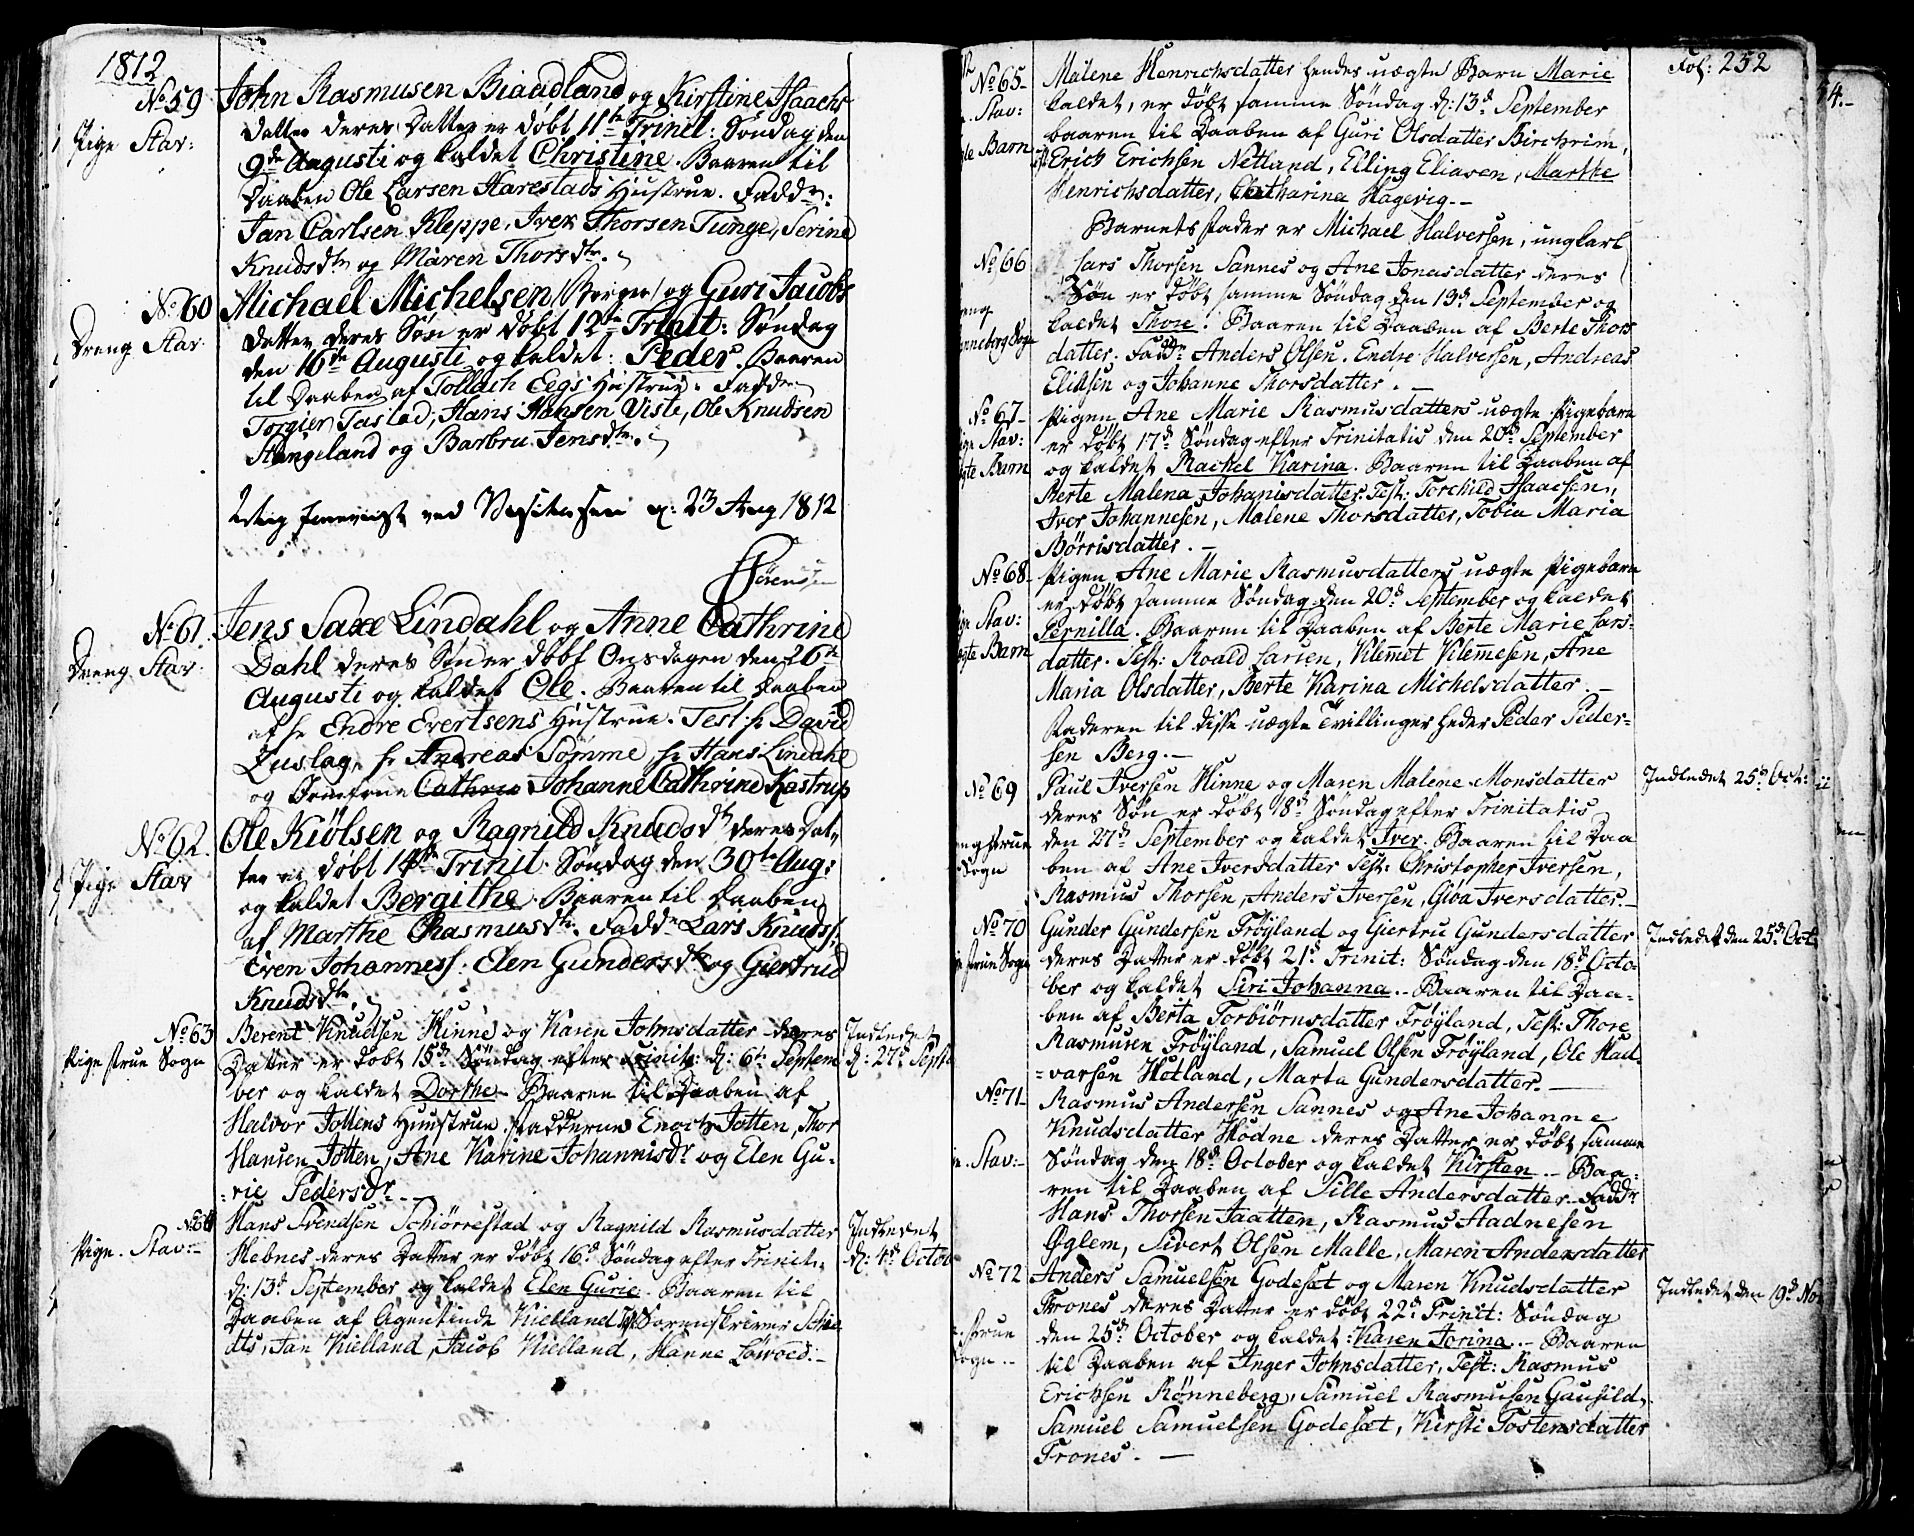 1812
No 59
Pige Stav:
John Rasmusen Biaudland og Kirstine Isaachs
datter deres Datter er døbt 11te Trinit: Søndag den
9de Augusti og kaldet Christine. Baaren til
Daaben Ole Larsen Harestads Hustrue. Faddr:
Jan Carlsen Kleppe, Iver Thorsen Tunge, Serine
Knudsdtr og Maren Thorsdtr.
No 60
Dreng Stav:
Michael Michelsen /Borger/ og Guri Jacobs
datter deres Søn er døbt 12te Trinit: Søndag
den 16de Augusti og kaldet: Peder. Baaren
til Daaben af Tollach Eegs Hustrue. Faddr
Torgier Tastad, Hans Hansen Viste, Ole Knudsen
Stangeland og Barbru Jensdtr.
ved Visitasen d: 23 Aug 1812
Sørensen
No 61.
Dreng Stav:
Jens Saxe Lindahl og Anne Cathrine
Dahl deres Søn er døbt Onsdagen den 26te
Augusti og kaldet Ole. Baaren til Daaben
af hr Endre Evertsens Hustrue. Test hr David
hr Andreas Sømme, hr Hans Lindahl
og Cathrin Johanne Cathrine Kastrup
No 62.
Pige Stav
Ole Kiølsen og Ragnild Knudsdtr deres Dat-
ter er døbt 14de Trinit. Søndag den 30te Aug:
og kaldet Bergithe. Baaren til Daaben
af Marthe Rasmusdtr. Faddr Lars Knuds:
Even Johanness: Elen Gundersdtr og Giertrud
Knudsdtr.
No 63
Pige frue Sogn
Berent Knudsen Hinne og Karen Johnsdatter deres
Datter er døbt 15de Søndag efter Trinit: d: 6te Septem
ber og kaldet Dorthe. Baaren til Daaben af
Halvor Jottens Huustrue. Fadderne Enoch Jotten, Thor
Hansen Jotten, Ane Karine Johannisdr og Elen Gu-
rie Pedersdr.
Indledet
d: 27de Septr
No 64
Pige. Stav:
Hans Svendsen Schiørrestad og Ragnild Rasmusdatter
Hebnes deres Datter er døbt 16d Søndag efter Trinit:
d: 13d September og kaldet Elen Gurie. Baaren til
Daaben af Agentinde Kielland Test: Sorenskriver Schi
dts, Jan Kielland, Jacob Kielland, Hanne Løwoed.
Indledet
d: 4d Octob
Fol: 252
54.
No 65
Stav:
Barn
Malene Henrichsdatter hendes uægte Barn Marie
kaldet, er døbt samme Søndag d: 13d September
baaren til Daaben af Guri Olsdatter Birchrim,
Erich Erichsen Netland, Elling Eliasen, Marthe
Henrichsdatter, Catharina Hagevig.
Barnets Fader er Michael Halversen, ungkarl
No 66
Lars Thorsen Sannes og Ane Jonasdatter deres
Søn er døbt samme Søndag den 13d September og
kaldet Thore. Baaren til Daaben af Berte Thors
datter. Faddr Anders Olsen. Endre Halversen, Andreas
Eliasen og Johanne Thorsdatter.
No 67
Stav:
Barn
Pigen Ane Marie Rasmusdatters uægte Pigebarn
er døbt 17d Søndag efter Trinitatis den 20d September
og kaldet Rachel Karina. Baaren til Daaben af
Berte Malena Johanisdatter. Test: Torchild Isaacsen,
Iver Johannesen, Malene Thorsdatter, Tobia Maria
Børrisdatter.
No 68
Stav:
Barn
Pigen Ane Marie Rasmusdatters uægte Pigebarn
er døbt samme Søndag den 20d September og kaldet
Pernilla. Baaren til Daaben af Berte Marie Lars-
datter. Test: Roald Larsen, Vilemet Vilemesen, Ane
Maria Olsdatter, Berte Karina Michelsdatter.
Faderen til disse uægte Tvillinger heder Peder Peder-
sen Berg.
No 69
Sogn
Paul Iversen Hinne og Maren Malene Monsdatter
deres Søn er døbt 18d Søndag efter Trinitatis
den 27d September og kaldet Iver. Baaren til Daa
ben af Ane Iversdatter Test: Christopher Iversen,
Rasmus Thorsen, Anders Iversen, Giøa Iversdatter.
Indledet 25d Oct:
No 70
frue Sogn
Gunder Gundersen Frøyland og Giertru Gundersdatter
deres Datter er døbt 21d Trinit: Søndag den 18d Octo-
ber og kaldet Siri Johanna. Baaren til Daa-
ben af Berta Torbiørnsdatter Frøyland, Test: Thore
Rasmusen Frøyland, Samuel Olsen Frøyland, Ole Had-
varsen Hetland, Marta Gundersdatter.
Indledet den 25d Oct.
No 71
Stav:
Rasmus Andersen Sannes og Ane Johanne
Knudsdatter Hodne deres Datter er døbt samme
Søndag den 18d October og kaldet Kirsten. Baa-
ren til Daaben af Sille Andersdatter. Faddr
Hans Thorsen Jaatten, Rasmus Aadnesen
Øglem, Sivert Olsen Malle, Maren Andersdatter
No 72
frue
Sogn
Anders Samuelsen Godeset og Maren Knudsdatter
Trones deres Datter er døbt 22d Trinit: Søndag
den 25d October og kaldet: Karen Jorina. Baaren
til Daaben af Inger Johnsdatter, Test: Rasmus
Erichsen Rønneberg, Samuel Rasmusen Gausild,
Samuel Samuelsen Godeset, Kirsti Tostensdatter
Trones.
Indledet den 19d No